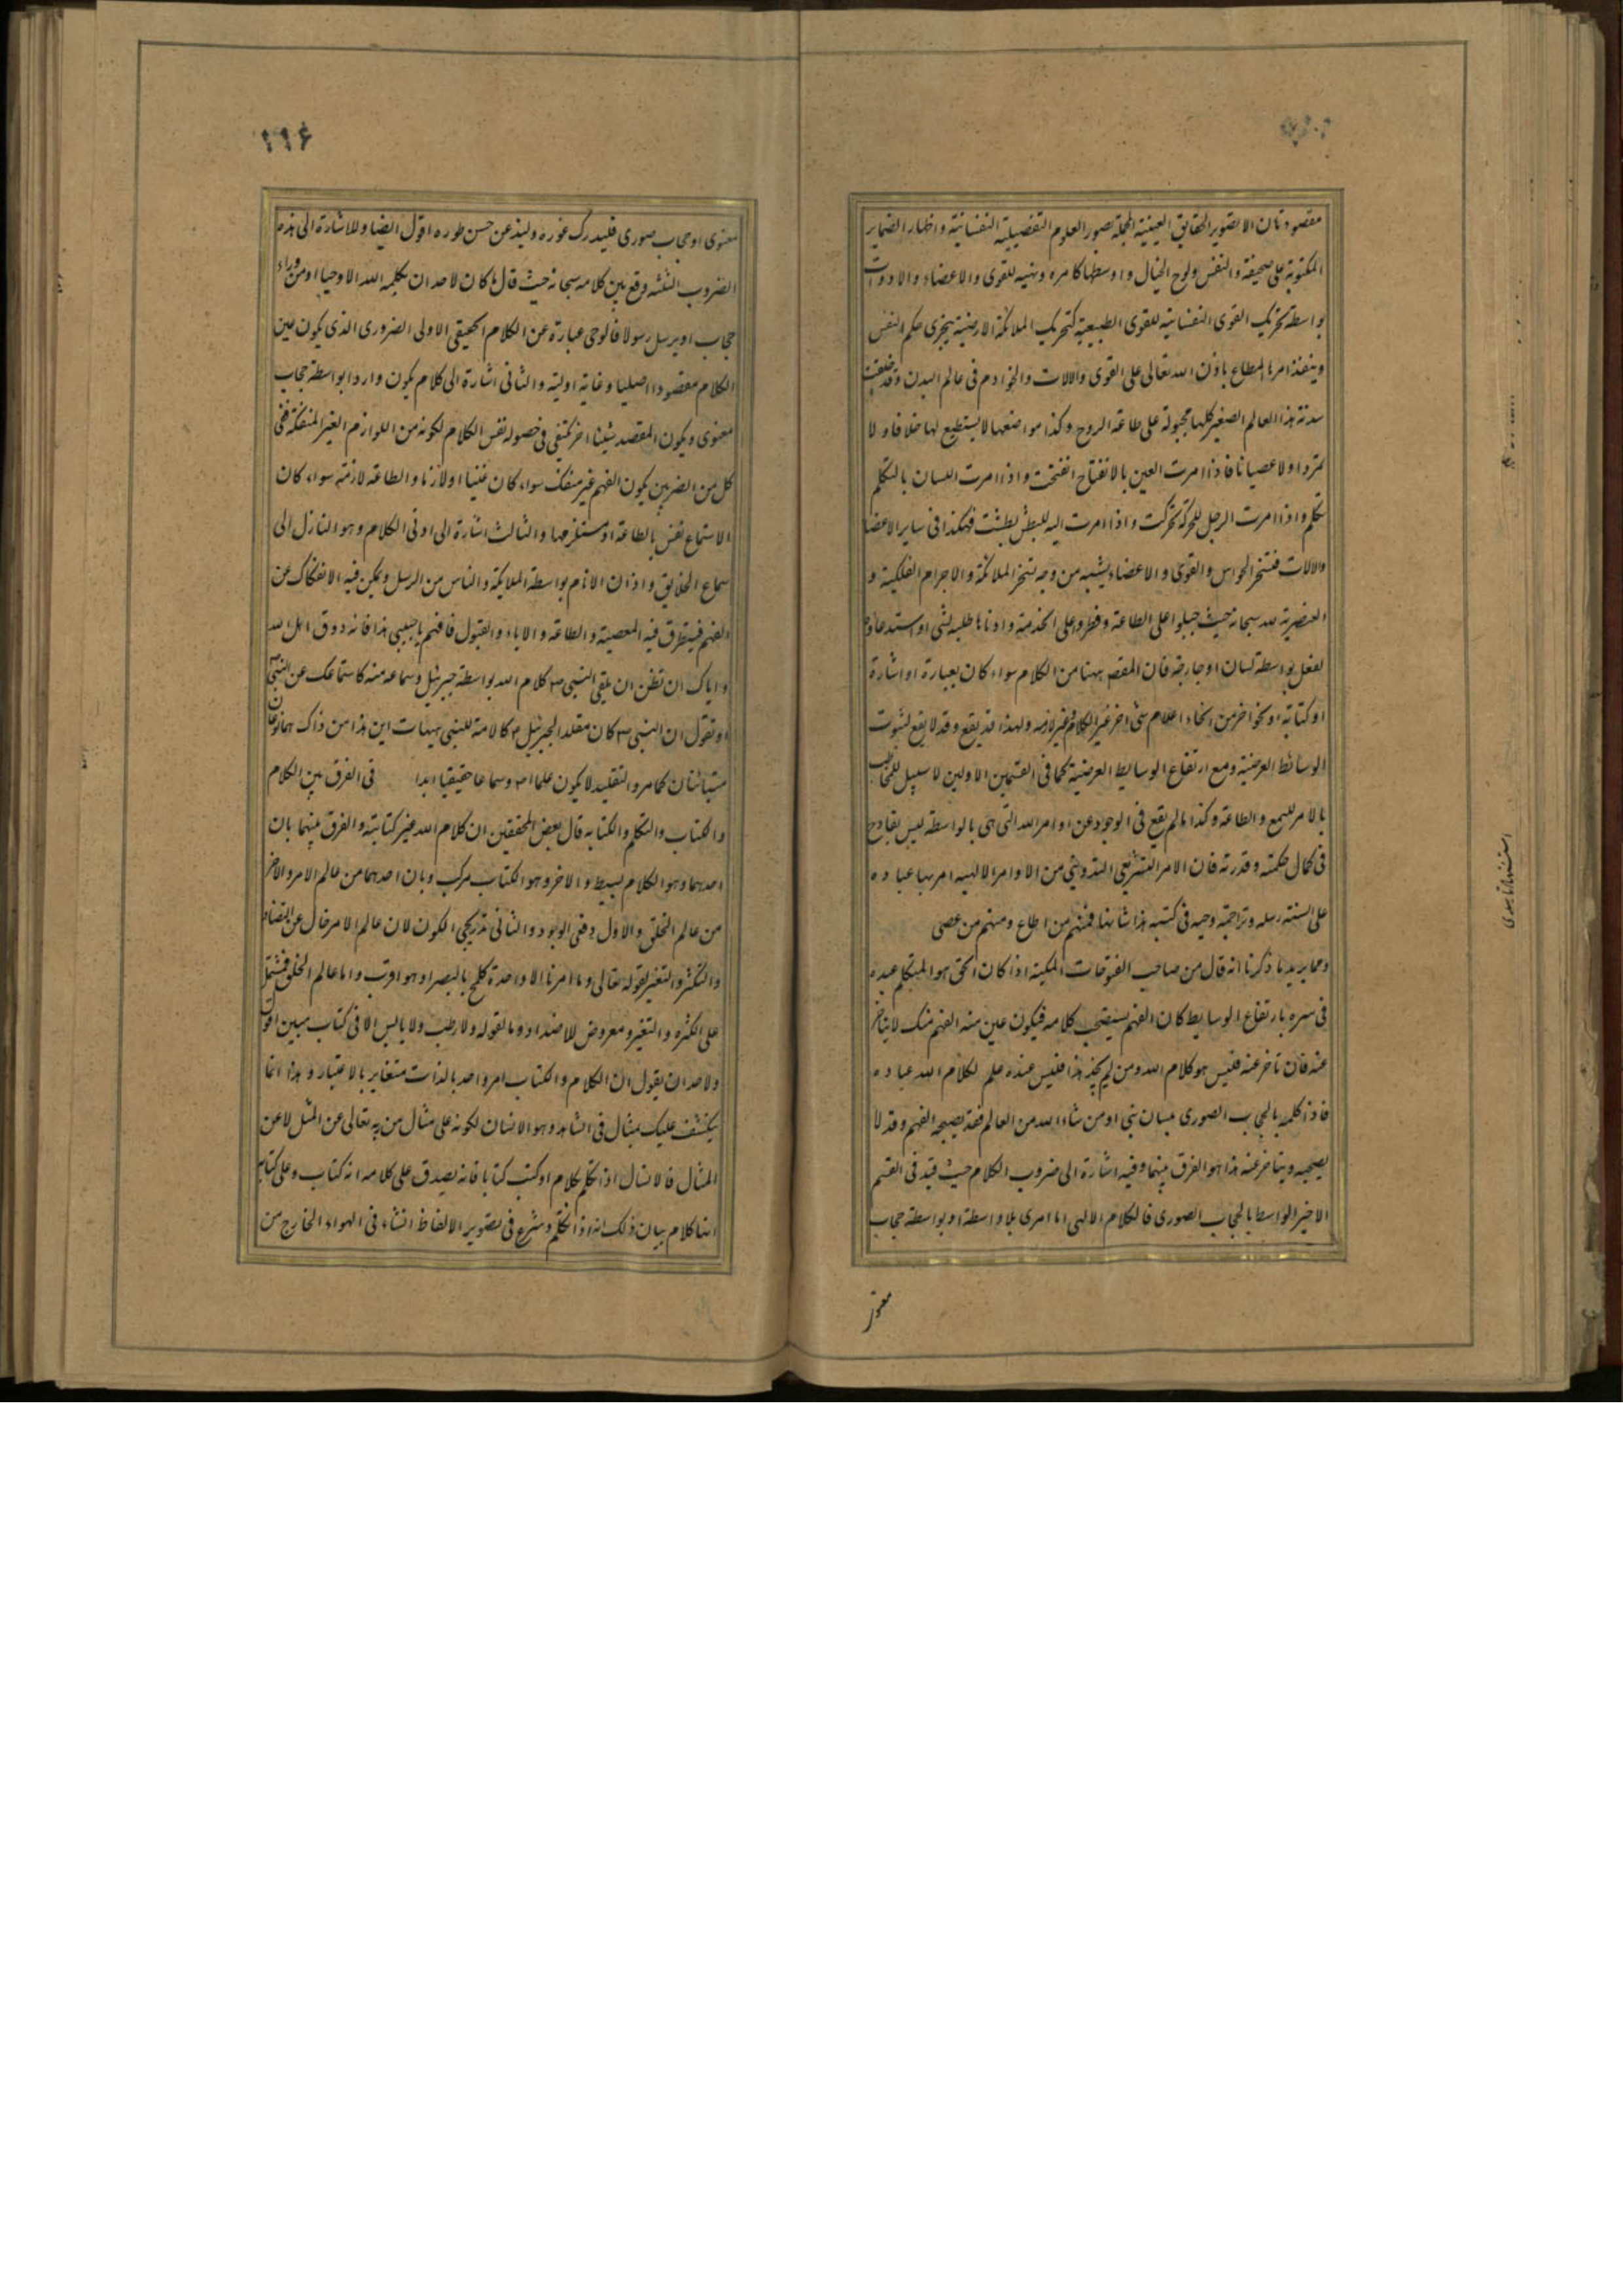 مقصود ثان الا تصوير الحقايق العينية المجملة بصور العلوم التفصيلية النفسانية واظهار الضماير
المكتوبة على صحيفة النفس ولوح الخيال واوسطها كامره ونهيه للقوى والاعضاء والادوات
بواسطة تحريك القوى النفسانية للقوى الطبيعية كتحريك الملائكة الارضية يجرى حكم النفس
وينفذ امرها المطاع باذن الله تعالى على القوى والالات والخوادم فى عالم البدن وقد خلقت
سدنة هذا العالم الصغير كلها مجبولة على طاعة الروح وكذا مواضعها لا يستطيع لها خلافا ولا
تمردا ولا عصيانا فاذا امرت العين بالانفتاح انفتحت واذا امرت اللسان بالتكلم
تكلم واذا امرت الرجل للحركة تحركت واذا امرت اليد للبطش بطشت فهكذا فى ساير الاعضا
والالات فتسخر الحواس والقوى والاعضاء يشبه من وجه تسخر الملائكة والاجرام الفلكية و
العنصرية لله سبحانه حيث جبلوا على الطاعة وفطروا على الخدمة وادناها طلبه لشى او استدعاؤه
لفعل بواسطة لسان او جارحة فان المقصد ههنا من الكلام سواء كان بعبارة او اشارة
او كتابة او نحو اخر من انحاء اعلام شى اخر غير الكلام وغير لازمه ولهذا قد يقع وقد لا يقع لثبوت
الوسائط العرضية ومع ارتفاع الوسايط العرضية كما فى القسمين الاولين لا سبيل للمخاطب
بالامر للسمع والطاعة وكذا ما لم يقع فى الوجود عن اوامر الله التى هى بالواسطة ليس بقادح
فى كمال حكمته وقدرته فان الامر التشريعى التدوينى من الاوامر الالهيه امر بها عباده
على السنة رسله وتراجمة وحيه فى كتبه هذا شانها فمنهم من اطاع ومنهم من عصى
ومما يريد ما ذكرنا انه قال من صاحب الفتوحات المكية اذا كان الحق هو المتكلم عبده
فى سره بارتفاع الوسايط كان الفهم يستصحب كلامه فيكون عين منه الفهم منك لا يتاخر
عنه فان تاخر عنه فليس هو كلام الله ومن لم يجد هذا فليس عنده علم لكلام الله عباده
فاذا كلمه بالحجاب الصورى بلسان نبى او من شاء الله من العالم فقد يصحبه الفهم وقد لا
يصحبه ويتاخر عنه هذا هو الفرق بينهما وفيه اشارة الى ضروب الكلام حيث قيد فى القسم
الاخير الواسطة بالحجاب الصورى فالكلام الالهى اما امرى بلا واسطة او بواسطة حجاب
معنوى
١١٤
معنوى او حجاب صورى فليدرك غوره ولينذ عن حسن طوره اقول ايضا وللاشارة الى هذه
الضروب الثلثه وقع بين كلامه سبحانه حيث قال ما كان لاحد ان يكلمه الله الا وحيا او من وراء
حجاب او يرسل رسولا فالوحى عبارة عن الكلام الحقيقى الاولى الضرورى الذى يكون عين
الكلام مقصودا اصليا وغاية اولية والثانى اشارة الى كلام يكون واردا بواسطة حجاب
معنوى ويكون المقصد شيئا اخر يكتفى فى حصوله نفس الكلام لكونه من اللوازم الغير المنفكة ففى
كل من الضربين يكون الفهم غير منفك سواء كان عينيا او لازما والطاعة لازمة سواء كان
الاستماع نفس الطاعة او مستلزمها والثالث اشارة الى ادنى الكلام وهو النازل الى
سماع الخلايق واذان الانام بواسطة الملايكة والناس من الرسل ويمكن فيه الانفكاك عن
الفهم فيتطرق فيه المعصية والطاعة والاباء والقبول فافهم يا حبيبى هذا فانه ذوق اهل الله
واياك ان تظن ان تلقى النبى ص كلام الله بواسطة جبرئيل وسماعه منه كاستماعك عن النبى ص
او تقول ان النبى ص كان مقلدا لجبرئيل م كالامة للنبى هيهات اين هذا من ذاك هما نوعان
متباينان كما مر والتقليد لا يكون علما اص وسماعا حقيقيا ابدا فى الفرق بين الكلام
والكتاب والتكلم والكتابه قال بعض المحققين ان كلام الله غير كتابته والفرق بينهما بان
احدهما وهو الكلام بسيط والاخر وهو الكتاب مركب وبان احدهما من عالم الامر والاخر
من عالم الخلق والاول دفعى الوجود والثانى تدريجى الكون لان عالم الامر خال عن التضاد
والتكثر والتغير لقوله تعالى وما امرنا الا واحدة كلمح بالبصر او هو اقرب واما عالم الخلق فمشتمل
على الكثرة والتغير ومعروض للاضداد وما لقوله ولا رطب ولا يابس الا فى كتاب مبين اقول
ولاحد ان يقول ان الكلام والكتاب امر واحد بالذات متغاير بالاعتبار وهذا انما
ينكشف عليك بمثال فى الشاهد وهو الانسان لكونه على مثال من ربه تعالى عن المثل لا عن
المثال فالانسان اذا تكلم بكلام او كتب كتابا فانه يصدق على كلامه انه كتاب وعلى كتابه
انها كلام بيان ذلك انه اذا تكلم وشرع فى تصوير الالفاظ انشاء فى الهواء الخارج من